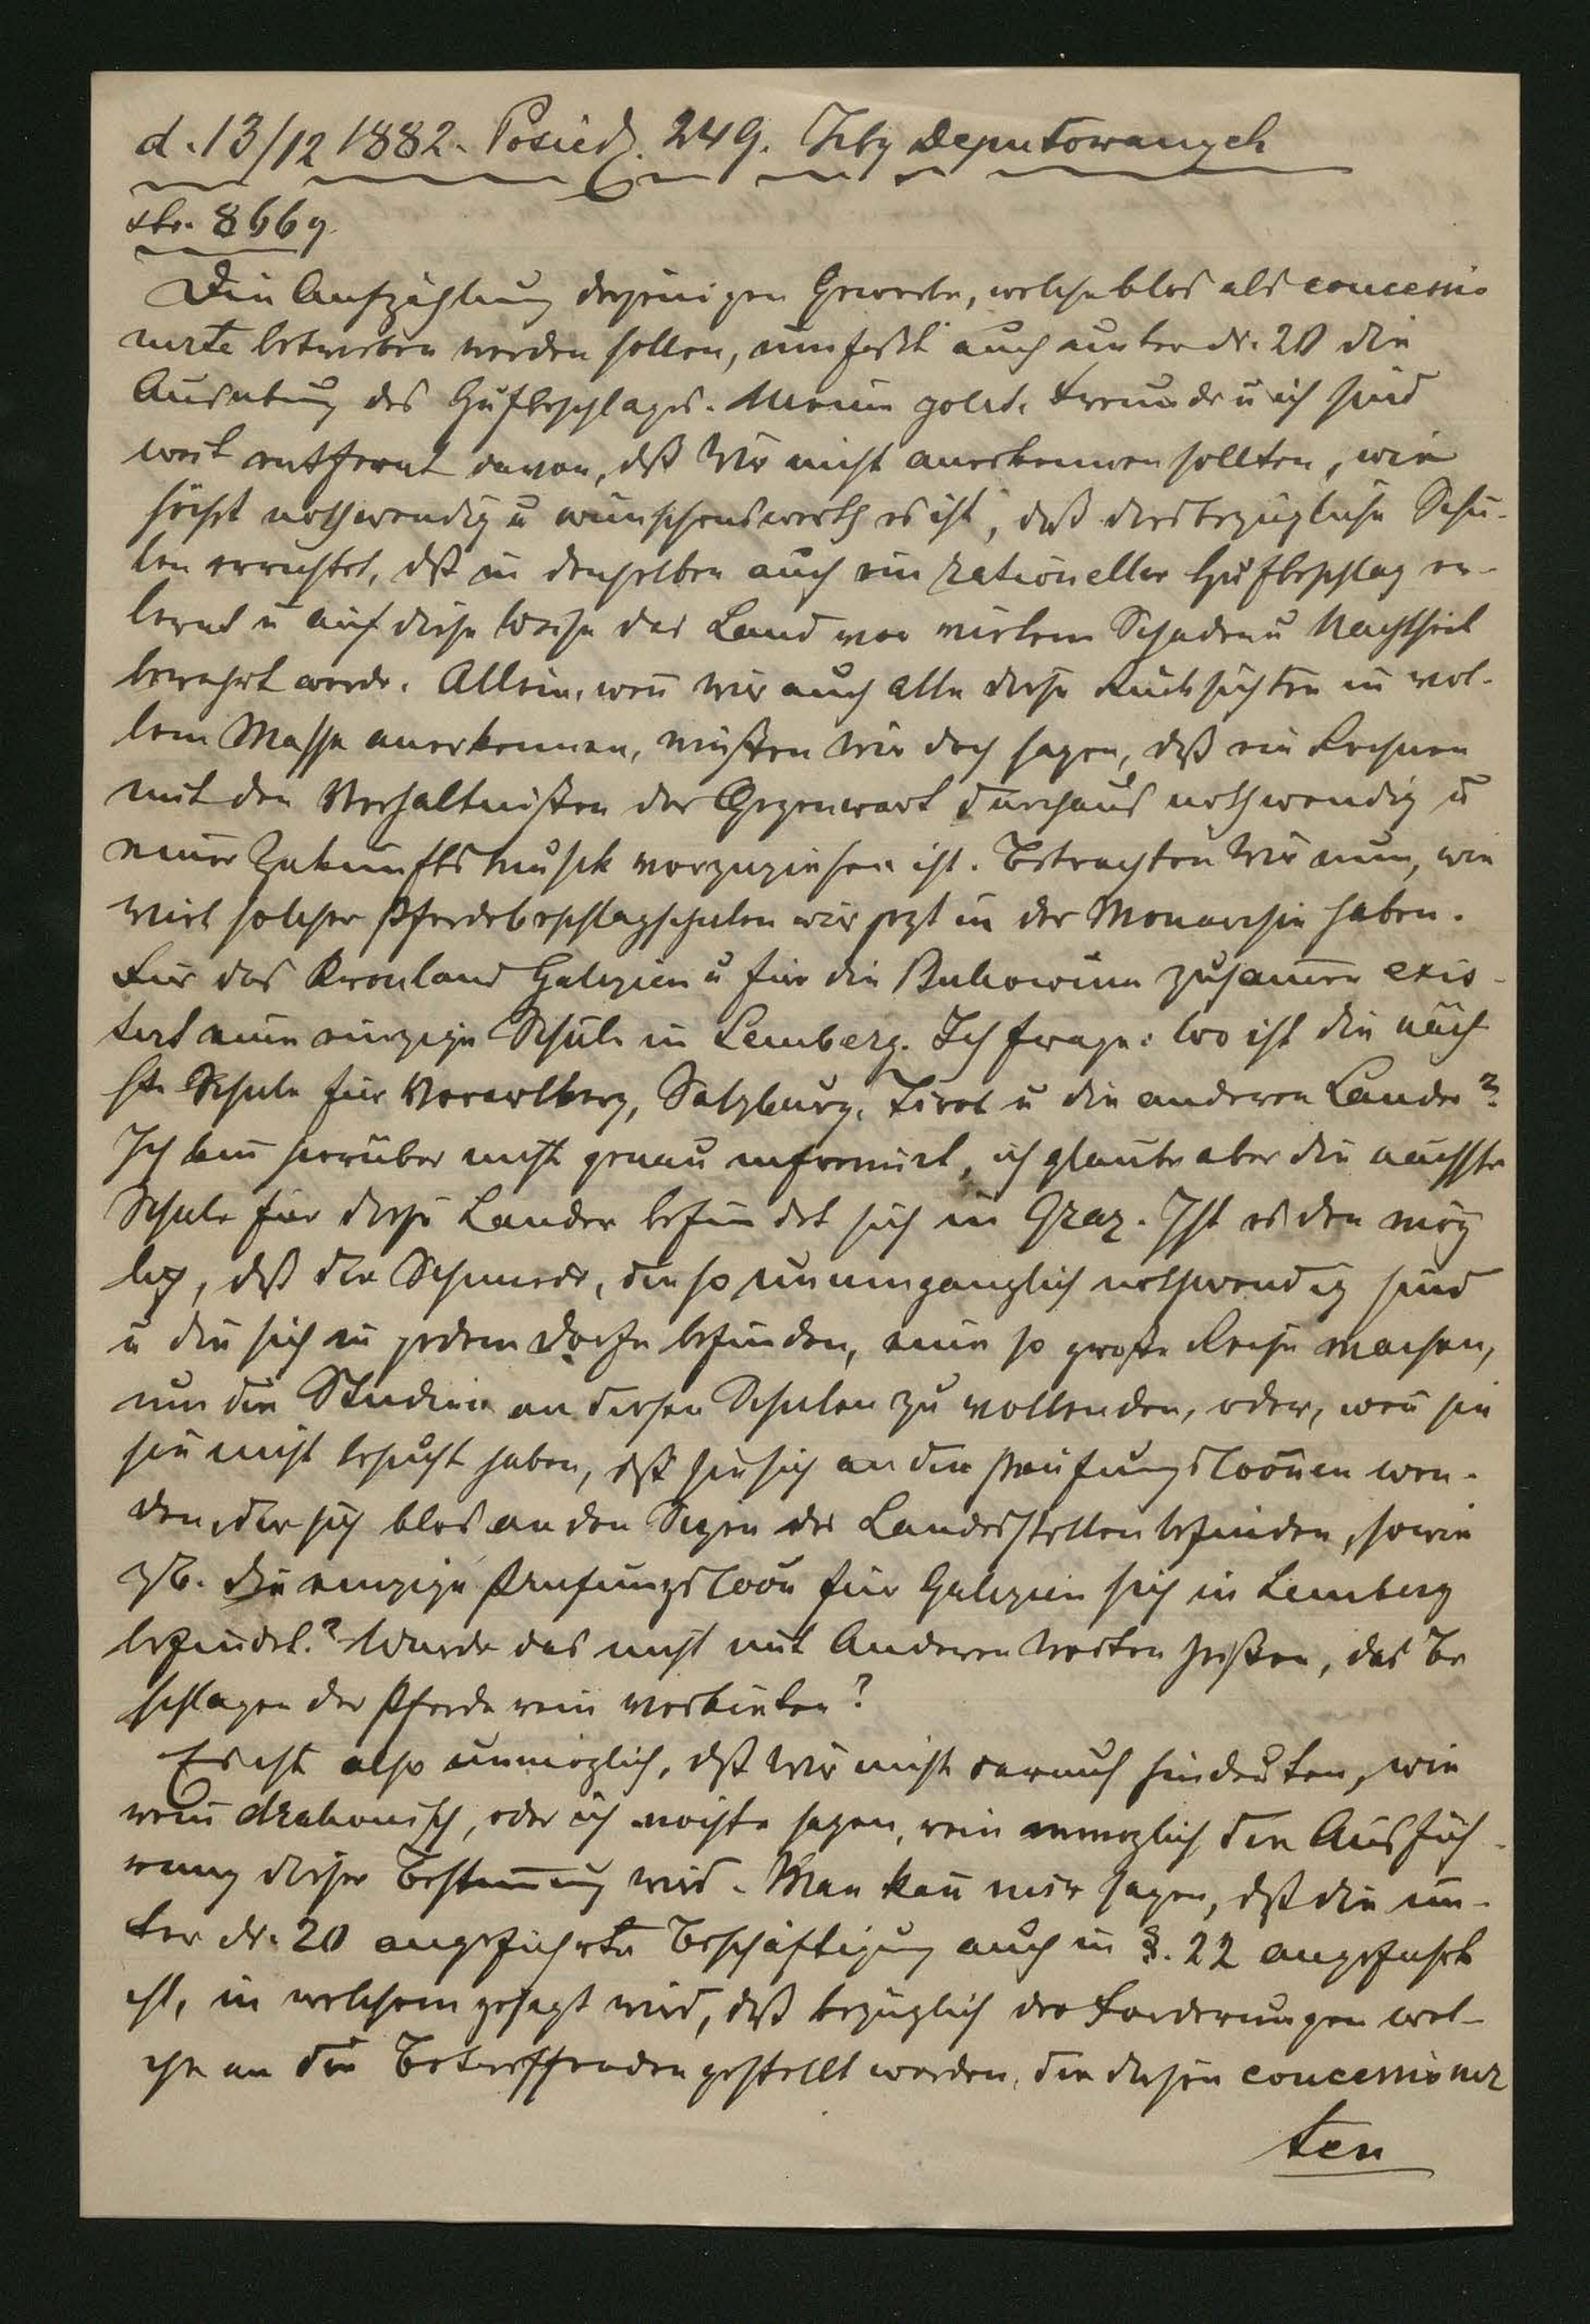 d. 13/12 1882. Posiedz. 249. Izby Deputowanych
str. 8669
Die Aufzählung derjenigen Gewerbe, welche blos als concessio
nirte betrieben werden sollen, umfaßt auch unter Nr. 20 die
Ausübung des Hufbeschlages. Meine polit. Freunde u ich sind
weit entfernt davon, dß wir nicht anerkennen sollten, wie
höchst nothwendig u wünschenswerth es ist, daß diesbezügliche Schu-
len errichtet, dß in denselben auch ein rationeller Hufbeschlag er-
lernt u auf diese Weise das Land vor vielem Schaden u Nachtheil
bewahrt werde. Allein, weñ wir auch alle diese Rücksichten in vol-
lem Masse anerkennen, müßten wir doch sagen, dß ein Rechnen
mit den Verhältnißen der Gegenwart durchaus nothwendig u
einer Zukunftsmusik vorzuziehen ist. Betrachten wir nun, wie
viel solcher Pferdebeschlagschulen wir jezt in der Monarchie haben.
Für das Kronland Galizien u für die Bukowina zusam̄en exis-
tirt eine einzige Schule in Lemberg. Ich frage: wo ist die näch
ste Schule für Vorarlberg, Salzburg, Tirol u die anderen Länder?
Ich bin hierüber nicht genau informirt, ich glaube aber die nächste
Schule für diese Länder befindet sich in Graz. Ist es den mög
lich, dß die Schmiede, die so unumgänglich nothwendig sind
u die sich in jedem Dorfe befinden, eine so große Reise machen,
um die Studien an diesen Schulen zu vollenden, oder, weñ sie
sie nicht besucht haben, dß sie sich an die Prüfungscom̄en wen-
den, die sich blos an den Sizen der Landesstellen befinden, sowie
zB. die einzige Prüfungscom̄ für Galizien sich in Lemberg
befindet? Wurde das nicht mit anderen Worten heißen, das Be
schlagen der Pferde rein verbieten?
Es ist also unmöglich, dß wir nicht darauf hindeuten, wie
rein drakonisch, oder ich möchte sagen, rein unmöglich die Ausfüh-
rung dieser Bestim̄ung wird. Man kañ mir sagen, dß die un-
ter Nr. 20 angeführte Beschäftigung auch in §. 22 angeführt
ist, in welchem gesagt wird, dß bezüglich der Forderungen wel-
che an die Betreffenden gestellt werden, die diesen concessionir
ten